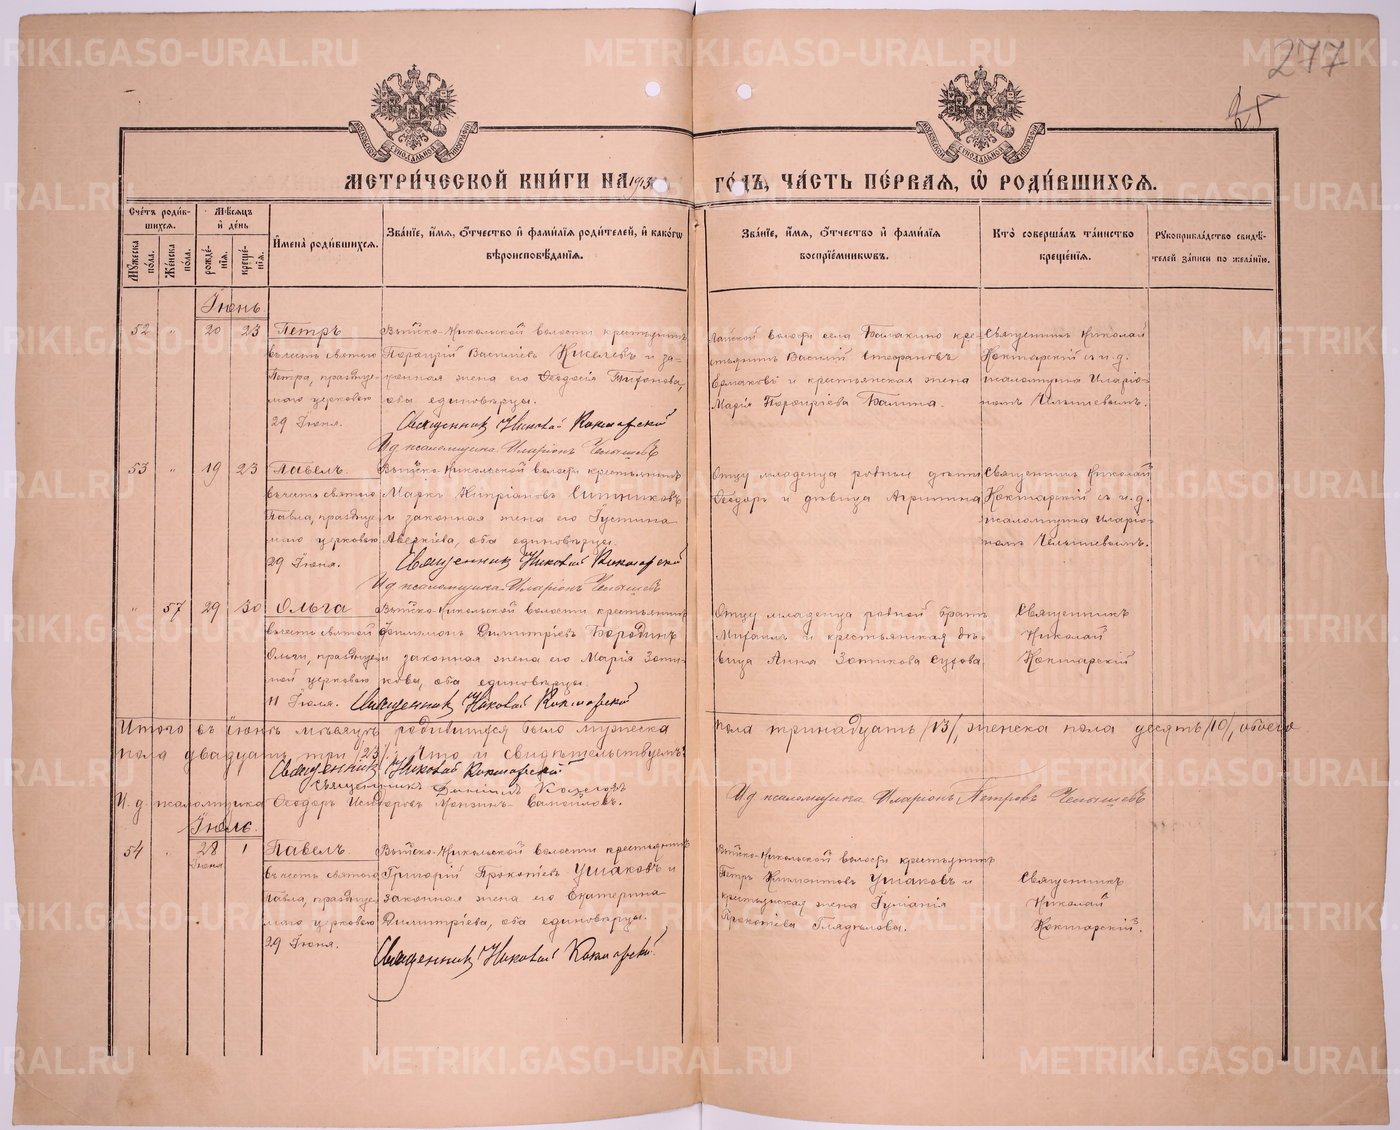 277
25
МЕТРИ́ЧЕСКОЙ КНИ́ГИ НА 1913
ГО́ДЪ, ЧА́СТЬ ПЕ́РВАЯ, Ѡ҆ РОДИ́ВШИХСЯ.
Сче́тъ роди́в-
шихся.
Мѣ́сяцъ
и҆ де́нь
Мꙋ́жеска по́ла.
Же́нска по́ла.
рожде́-
нія.
креще́-
нія.
И҆мена̀ роди́вшихся.
Зва́нїе, и҆́мя, ѻ҆́тчество и҆ фами́лїя роди́телей, и҆ како́гѡ
вѣроисповѣ́данїя.
Зва́нїе, и҆́мя, ѻ҆́тчество и҆ фами́лїя
воспрїе́мникѡвъ.
Кто̀ соверша́лъ та́инство
креще́нїя.
Рꙋкоприкла́дство свидѣ́-
телей за́писи по жела́нїю.
Іюнь.
52 " 20 23 Петръ
въ честь святого
Петра, празднуе-
маго церковью
29 Іюня.
Выйско-Никольской волости крестьянинъ
Порфирій Василіевъ Киселевъ и за-
конная жена его Ѳеодосія Трифонова,
оба единовѣрцы.
Священник Николай Кокшарской
И д псаломщика Иларіонъ Челышевъ
Лайской волости села Балакино кре-
стьянинъ Василій Стефановъ
Ермаковъ и крестьянская жена
Марія Порфиріева Балина.
Священникъ Николай
Кокшарскій съ и. д.
псаломщика Иларіо-
номъ Челышевымъ.
53 " 19 23 Павелъ
въ честь святого
Павла, празднуе-
маго церковью
29 Іюня.
Выйско-Никольской волости крестьянинъ
Маркъ Кипріановъ Ситниковъ
и законная жена его Іустина
Аверкіева, оба единовѣрцы.
Священник Николай Кокшарской
И д псаломщика Иларіонъ Челышевъ
Отцу младенца родныя дѣти
Ѳеодоръ и дѣвица Агриппина
Священникъ Николай
Кокшарскій съ и. д.
псаломщика Иларіо-
номъ Челышевымъ.
" 57 29 30 Ольга
въ честь святой
Ольги, празднуе-
мой церковью
11 Іюля.
Выйско-Никольской волости крестьянинъ
Филимонъ Димитріевъ Бородинъ
и законная жена его Марія Зоти-
кова, оба единовѣрцы.
Священник Николай Кокшарской
Отцу младенца родной братъ
Михаилъ и крестьянская дѣ-
вица Анна Зотикова Сухова
Священникъ
Николай
Кокшарскій
Итого въ іюнѣ мѣсяцѣ родившихся было мужеска
пола тринадцать /13/, женска пола десять /10/, обоего
пола двадцать три /23/. Что и свидѣтельствуемъ:
Священник Николай Кокшарской
Священникъ Даніилъ
И. д. псаломщика Ѳеодоръ
И д псаломщика Иларіонъ Петровъ Челышевъ
Іюль.
54 " 28 Іюня 1 Павелъ
въ честь святого
Павла, празднуе-
маго церковью
29 Іюня.
Выйско-Никольской волости крестьянинъ
Григорій Прокопіевъ Ушаковъ и
законная жена его Екатерина
Димитріева, оба единовѣрцы.
Священник Николай Кокшарской
Выйско-Никольской волости крестьянинъ
Петръ Ушаковъ и
крестьянская жена Іуліанія
Прокопіева Гладкова.
Священникъ
Николай
Кокшарскій.
METRIKI.GASO-URAL.RU